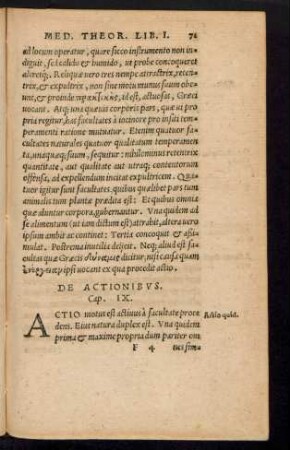 MED. THEOR. LIB. I. 71
ad locum operatur, quare sicco instrumento non in-
diguit, sed calido & humido, ut probe concoqueret
aleretq́;. Reliquæ vero tres nempe attractrix, reten-
trix, & expultrix, non sine motu munus suum obe-
unt, & proinde πρακτικὰς, id est, actuosas, Græci
vocant. Atq; una quævis corporis pars, quæ ut pro
propria regitur, has facultates à iecinore pro insiti tem-
peramenti ratione mutuatur. Etenim quatuor fa-
cultates naturales quatuor qualitatum temperamen-
ta, unaquæq; suum, sequitur: nihilominus retentrix
quantitate, aut qualitate aut utraq; contentorum
offensa, ad expellendum incitat expultricem. Qua-
tuor igitur sunt facultates quibus quælibet pars tum
animalis tum plantæ prædita est: Et quibus omnia
quæ aluntur corpora, gubernantur. Vna quidem ad
se alimentum (ut iam dictum est) attrahit, altera vero
ipsum ambit ac continet: Tertia concoquit & assi-
mulat. Postrema inutilia deijcit. Neq; aliud est fa-
cultas quàm Græcis δύναμις dicitur, nisi causa quam
ἐνέργειαν ipsi vocant ex qua procedit actio.
DE ACTIONIBVS.
Cap. IX.
ACTIO motus est activus à facultate proce Actio quid.
dens. Eius natura duplex est. Vna quidem
prima & maxime propria dum pariter om
F 4 nes sima